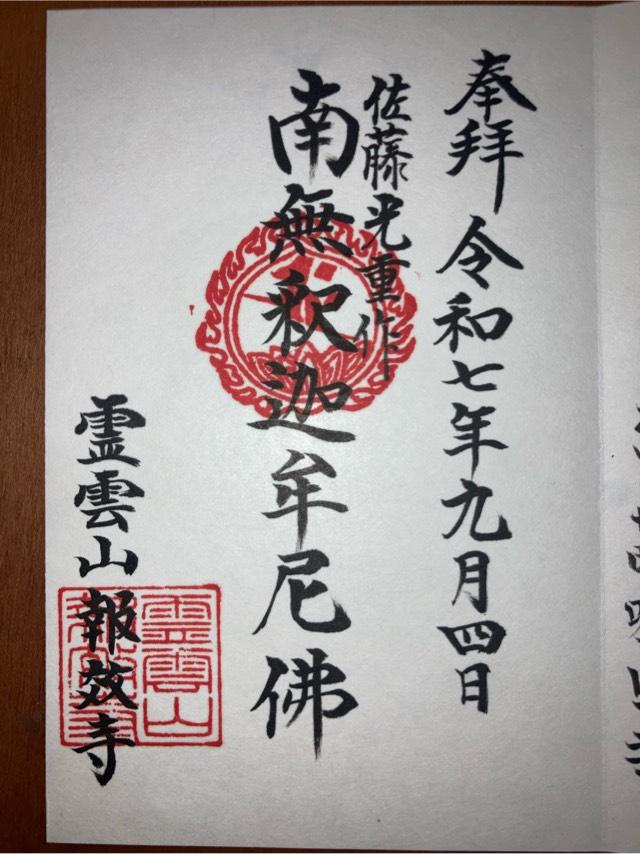 奉拝 令和七年九月四日
佐藤光重作
南無釈迦牟尼佛
霊雲山報效寺